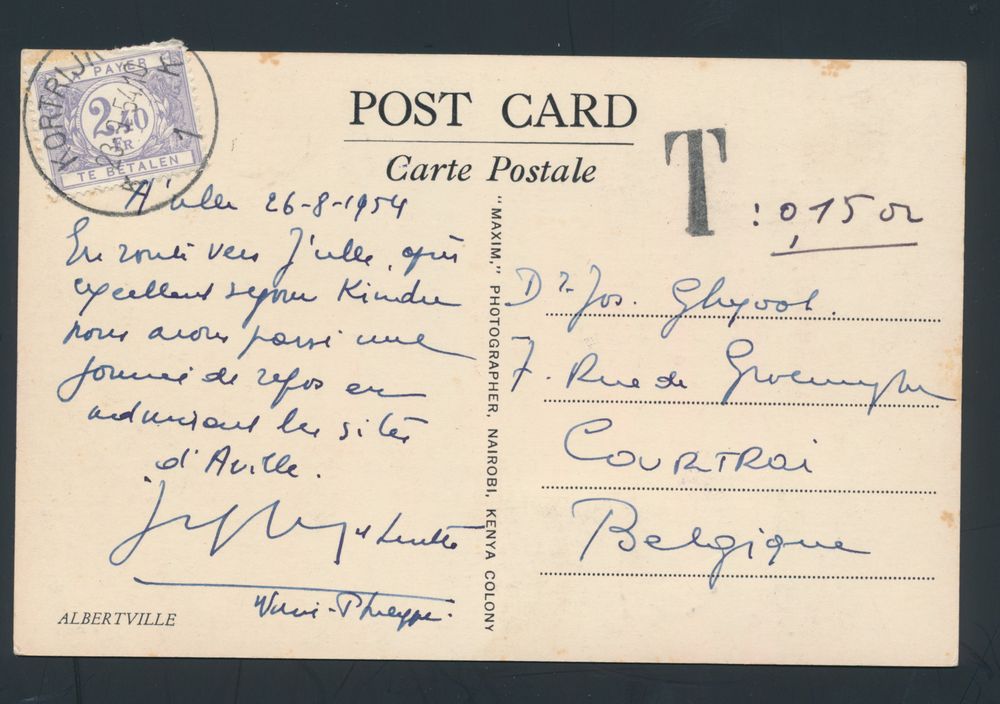 KORTRIJK
1
PAYER
2,40
FR
TE BETALEN
POST CARD
Carte Postale
T
: 0,15 or
A'ville 26-8-1954
En route vers J'ville, après
excellent séjour Kindu
nous avons passé une
journée de repos en
admirant les sites
d'Aville.
"MAXIM," PHOTOGRAPHER, NAIROBI, KENYA COLONY
Dr Jos.
7. Rue de
COURTRAI
Belgique
ALBERTVILLE